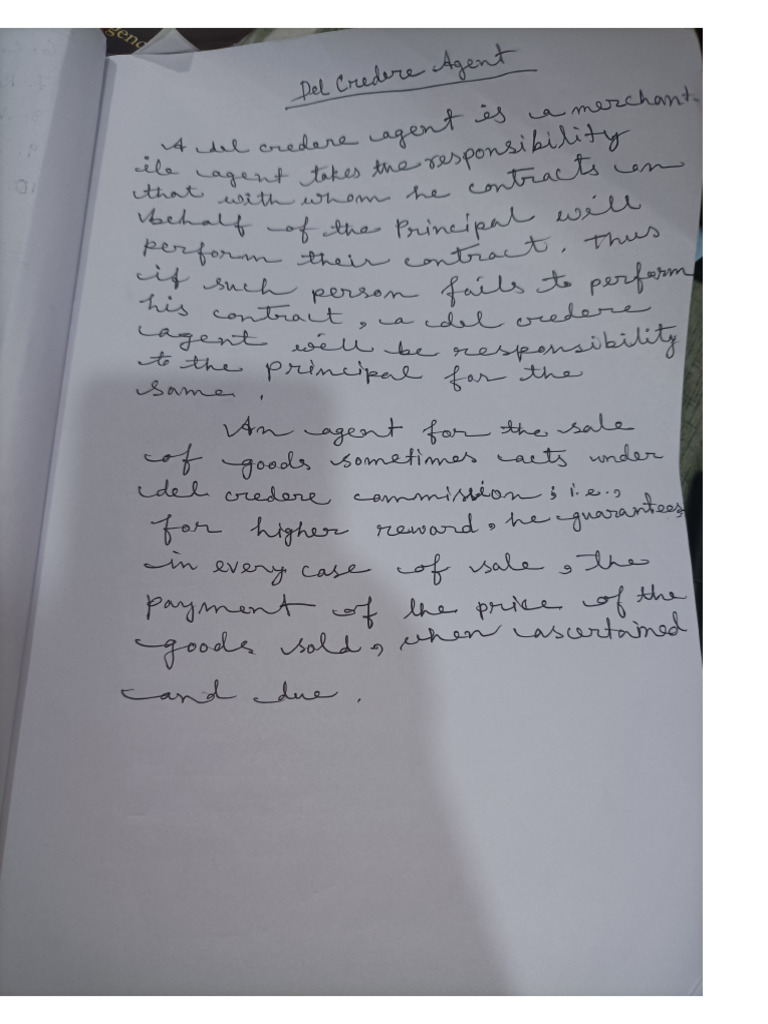 gen
Del Credere Agent
A del credere agent is a merchant-
ile agent takes the responsibility
that with whom he contracts on
behalf of the Principal will
perform their contract. Thus
if such person fails to perform
his contract, a del credere
agent will be responsibility
to the principal for the
same.
An agent for the sale
of goods sometimes acts under
del credere commission; i.e.,
for higher reward, he guarantees,
in every case of sale, the
payment of the price of the
goods sold, when ascertained
and due.